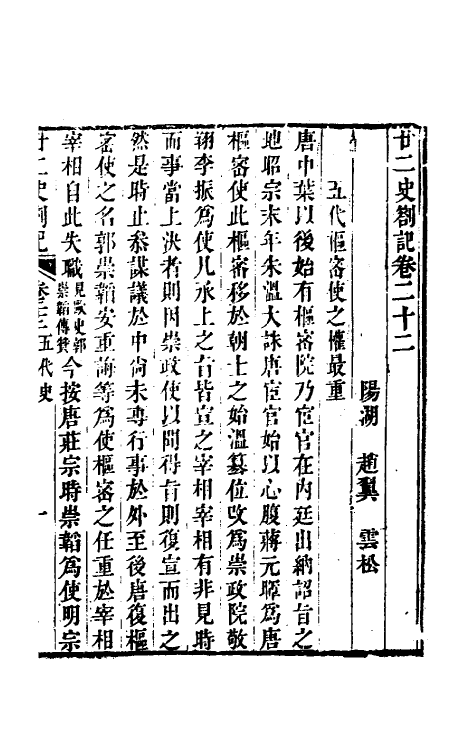 廿二史劄記卷二十二
陽湖　趙翼　雲松
五代樞密使之權最重
唐中葉以後始有樞密院乃宦官在內廷出納詔旨之
地昭宗末年朱溫大誅唐宦官始以心腹蔣元暉為唐
樞密使此樞密移於朝士之始溫篡位改為崇政院敬
翔李振為使凡承上之旨皆宣之宰相宰相有非見時
而事當上決者則因崇政使以聞得旨則復宣而出之
然是時止參謀議於中尚未專行事於外至後唐復樞
密使之名郭崇韜安重誨等為使樞密之任重於宰相
宰相自此失職見歐史郭崇韜傳贊今按唐莊宗時崇韜為使明宗
廿二史劄記　卷二十二　五代史　一